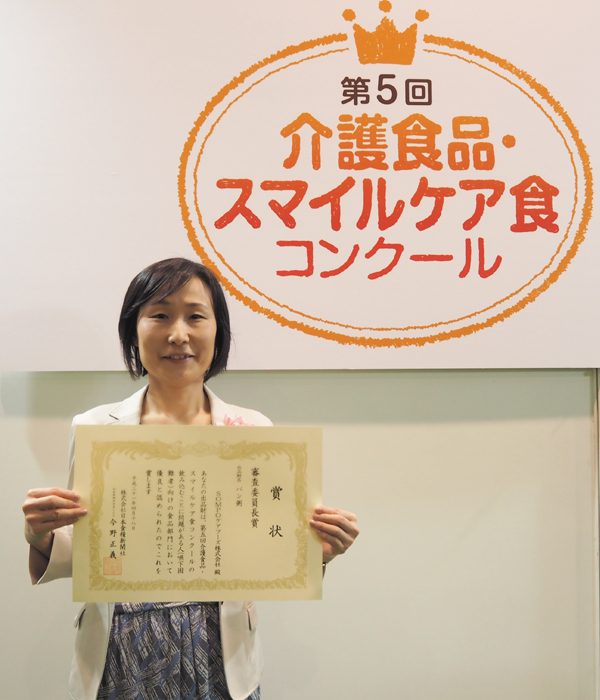 第5回
介護食品・
スマイルケア食
コンクール
賞状
審査委員長賞
出品財名 パン粥
SOMPOケアフーズ株式会社 殿
あなたの出品財は、第五回介護食品・
スマイルケア食コンクールの
飲み込むことに問題がある人(嚥下困
難者)向けの食品部門において
優良と認められたのでこれを
賞します
平成三十一年四月十八日
株式会社日本食糧新聞社
今野正義